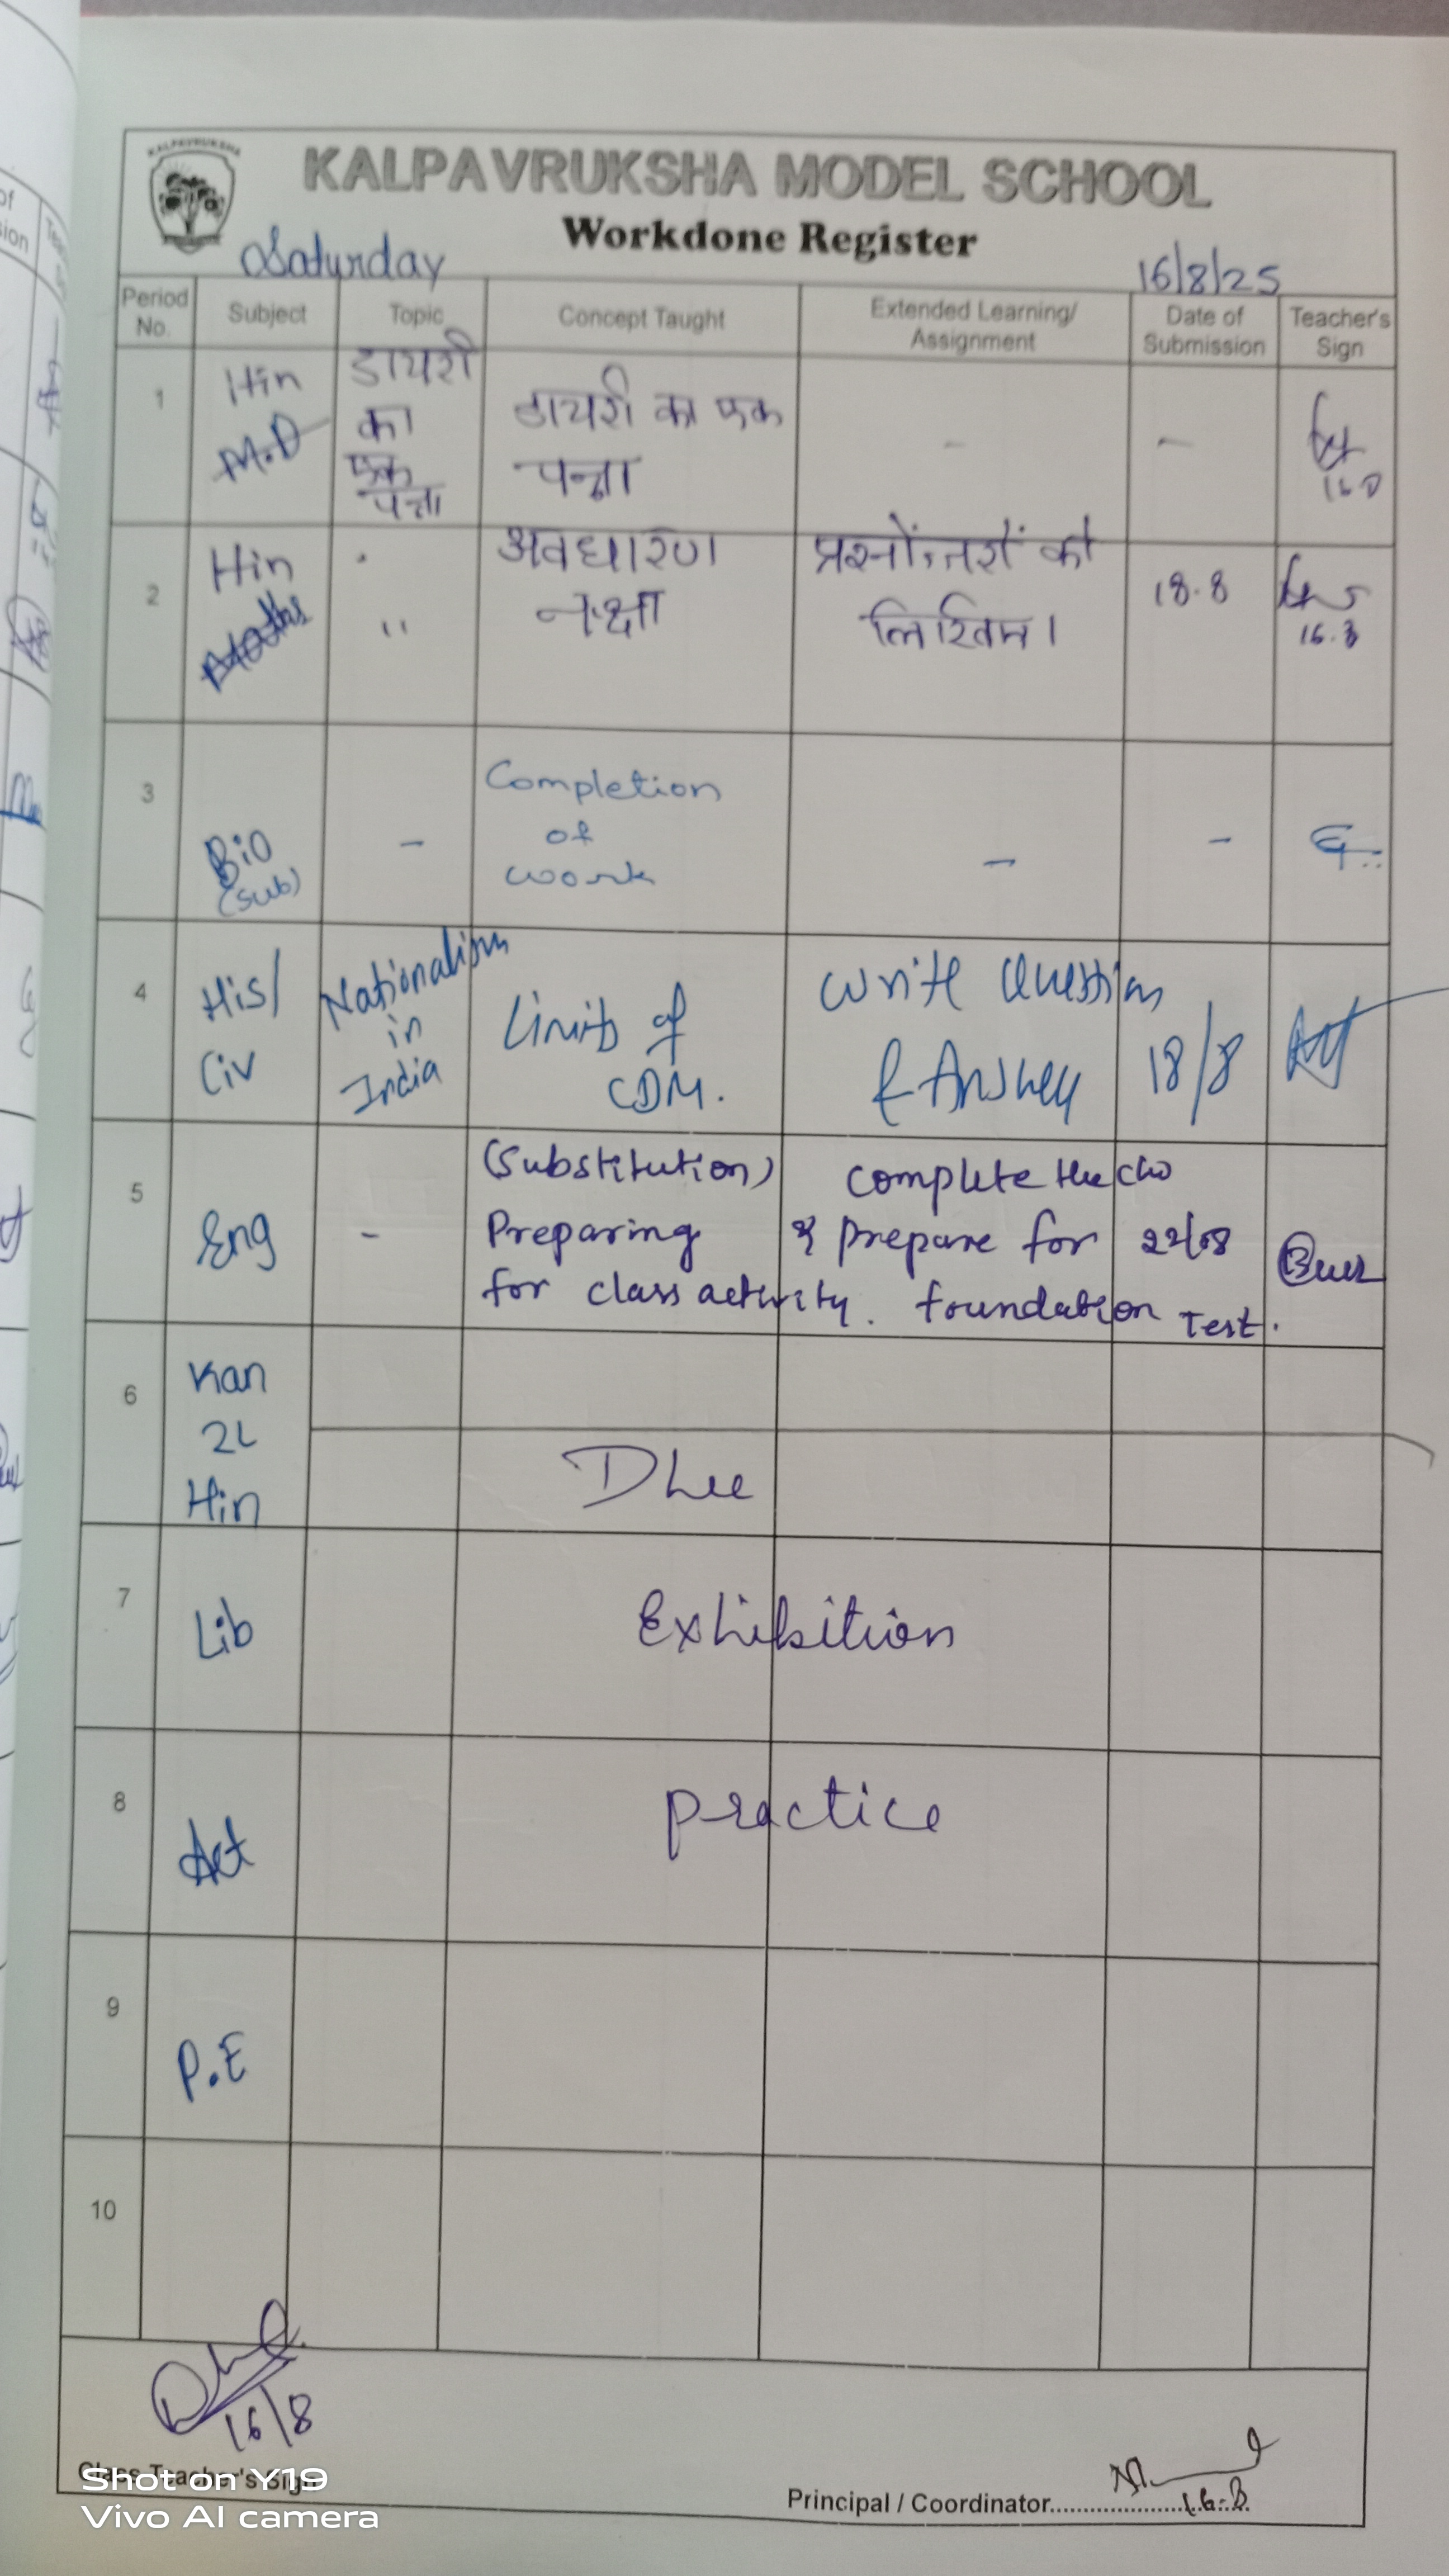 KALPAVRUKSHA
KALPAVRUKSHA MODEL SCHOOL
Workdone Register
Saturday 16/8/25
Period No. Subject Topic Concept Taught Extended Learning/ Assignment Date of Submission Teacher's Sign
1 Hin M.D डायरी का एक पन्ना डायरी का एक पन्ना - - 16.8
2 Hin Maths " अवधारणा नक्षा प्रश्नोंत्तरों को लिखित। 18.8 16.8
3 Bio (sub) - Completion of work - -
4 His/ Civ Nationalism in India Limits of CDM. Write Question & Answer 18/8
5 Eng - (Substitution) Preparing for class activity. complete the cw & prepare for foundation Test. 22/08
6 Kan 2L Hin
7 Lib Exhibition
8 Act practice
9 P.E
10
16/8
Class Teacher's Sign
Principal / Coordinator 16.8
Shot on Y19
Vivo AI camera